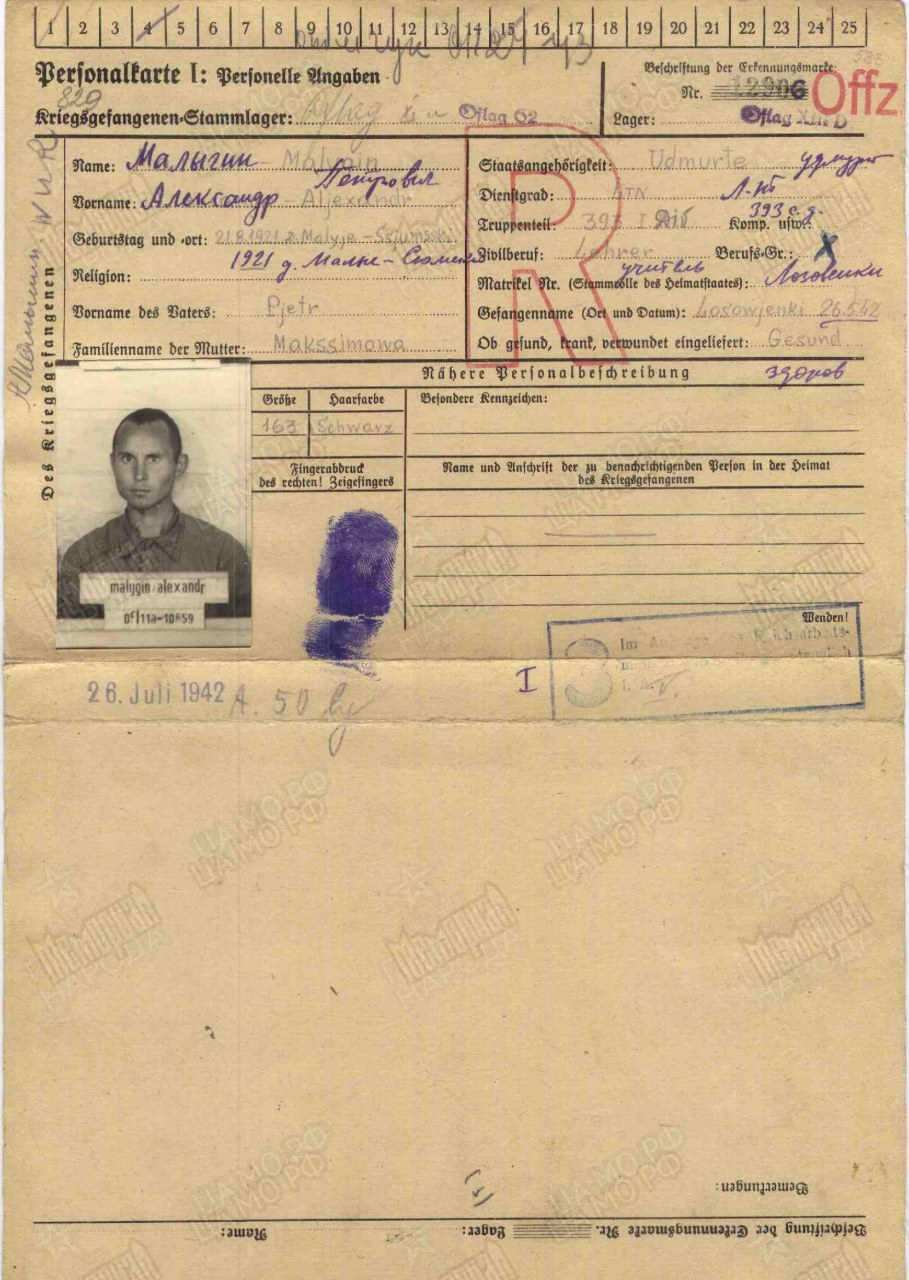 1 2 3 4 5 6 7 8 9 10 11 12 13 14 15 16 17 18 19 20 21 22 23 24 25
Personalkarte I: Personelle Angaben
Beschriftung der Erkennungsmarke
Nr. 12906
Offz
829
Kriegsgefangenen-Stammlager: Oflag 62
Lager: Oflag XIII D
Des Kriegsgefangenen
Name: Малыгин - Malygin
Петрович
Vorname: Александр - Aljexandr
Geburtstag und -ort: 21.8.1921
1921 д. Малые-
Religion:
Vorname des Vaters: Pjetr
Familienname der Mutter: Makssimowa
R
Staatsangehörigkeit: Udmurte удмурт
Dienstgrad: LTN Л-нт
Truppenteil: 393 I Div Komp. usw.: 393 с.д.
Zivilberuf: Lehrer Berufs-Gr.: X
учитель
Matrikel Nr. (Stammrolle des Heimatstaates): Лозовеньки
Gefangenname (Ort und Datum): Losowjenki 26.5.42
Ob gesund, krank, verwundet eingeliefert: Gesund
здоров
Nähere Personalbeschreibung
Größe Haarfarbe
163 Schwarz
Besondere Kennzeichen:
Fingerabdruck
des rechten! Zeigefingers
Name und Anschrift der zu benachrichtigenden Person in der Heimat
des Kriegsgefangenen
malygin, alexandr
of 11a-10659
Wenden!
3
Im
26. Juli 1942
A. 50
I
ЦАМО РФ
Мемориал
НАРОДА
Bemerkungen:
Beschriftung der Erkennungsmarke Nr. Lager: Name: